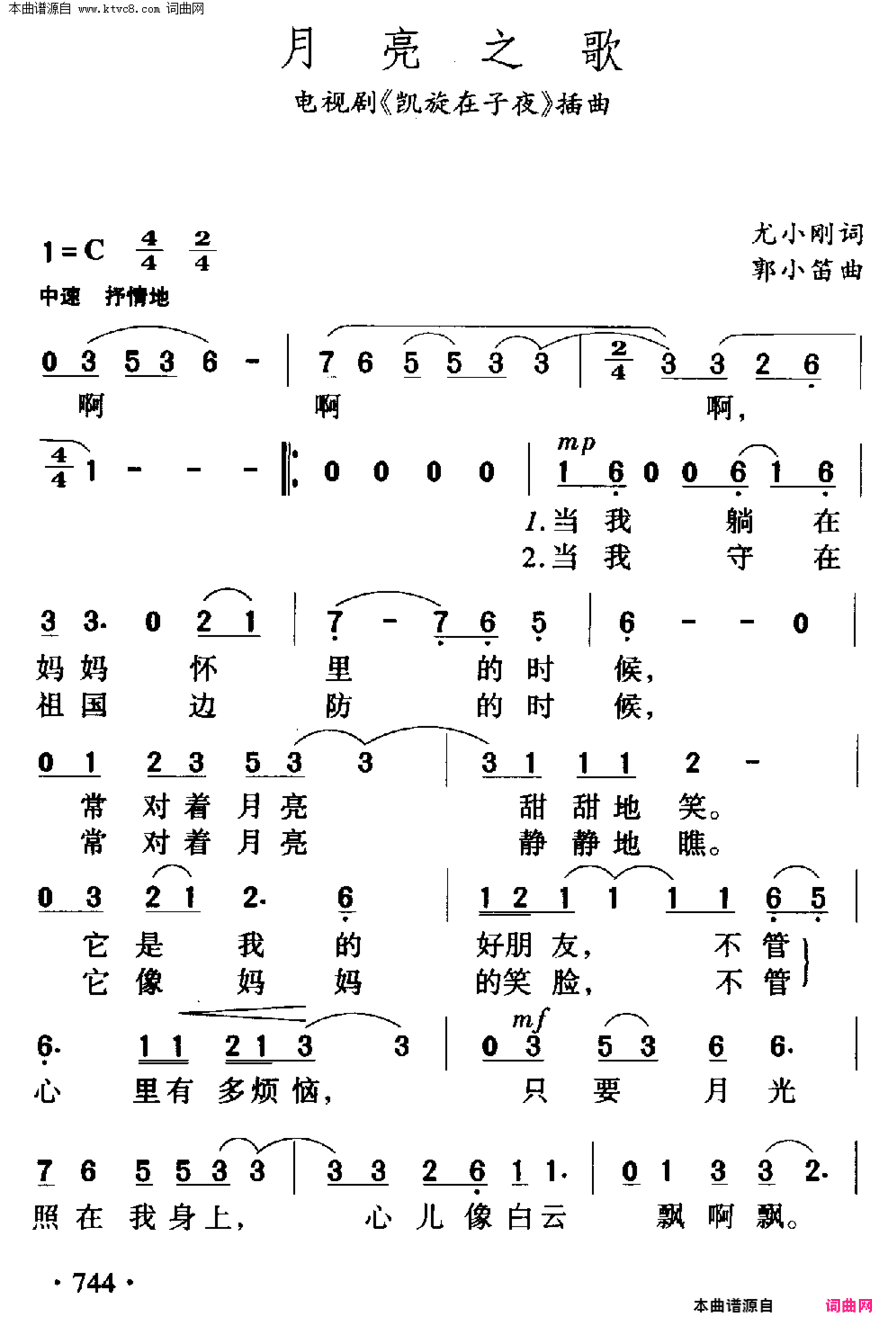 本曲谱源自 www.ktvc8.com 词曲网
月亮之歌
电视剧《凯旋在子夜》插曲
尤小刚词
1=C 4/4 2/4
郭小笛曲
中速 抒情地
0 3 5 3 6 - | 7 6 5 5 3 3 | 2/4 3 3 2 6 |
啊 啊 啊,
4/4 1 - - - |: 0 0 0 0 | mp 1 6 0 0 6 1 6 |
1.当我 躺 在
2.当我 守 在
3 3. 0 2 1 | 7 - 7 6 5 | 6 - - 0 |
妈妈 怀 里 的时 候,
祖国 边 防 的时 候,
0 1 2 3 5 3 3 | 3 1 1 1 2 - |
常 对着月亮 甜 甜地 笑。
常 对着月亮 静 静地 瞧。
0 3 2 1 2. 6 | 1 2 1 1 1 1 6 5 |
它是 我 的 好朋友, 不管
它像 妈 妈 的笑脸, 不管
6. 1 1 2 1 3 3 | mf 0 3 5 3 6 6. |
心 里有多烦恼, 只 要 月 光
7 6 5 5 3 3 | 3 3 2 6 1 1. | 0 1 3 3 2. |
照在我身上, 心儿像白云 飘啊飘。
·744·
本曲谱源自 词曲网